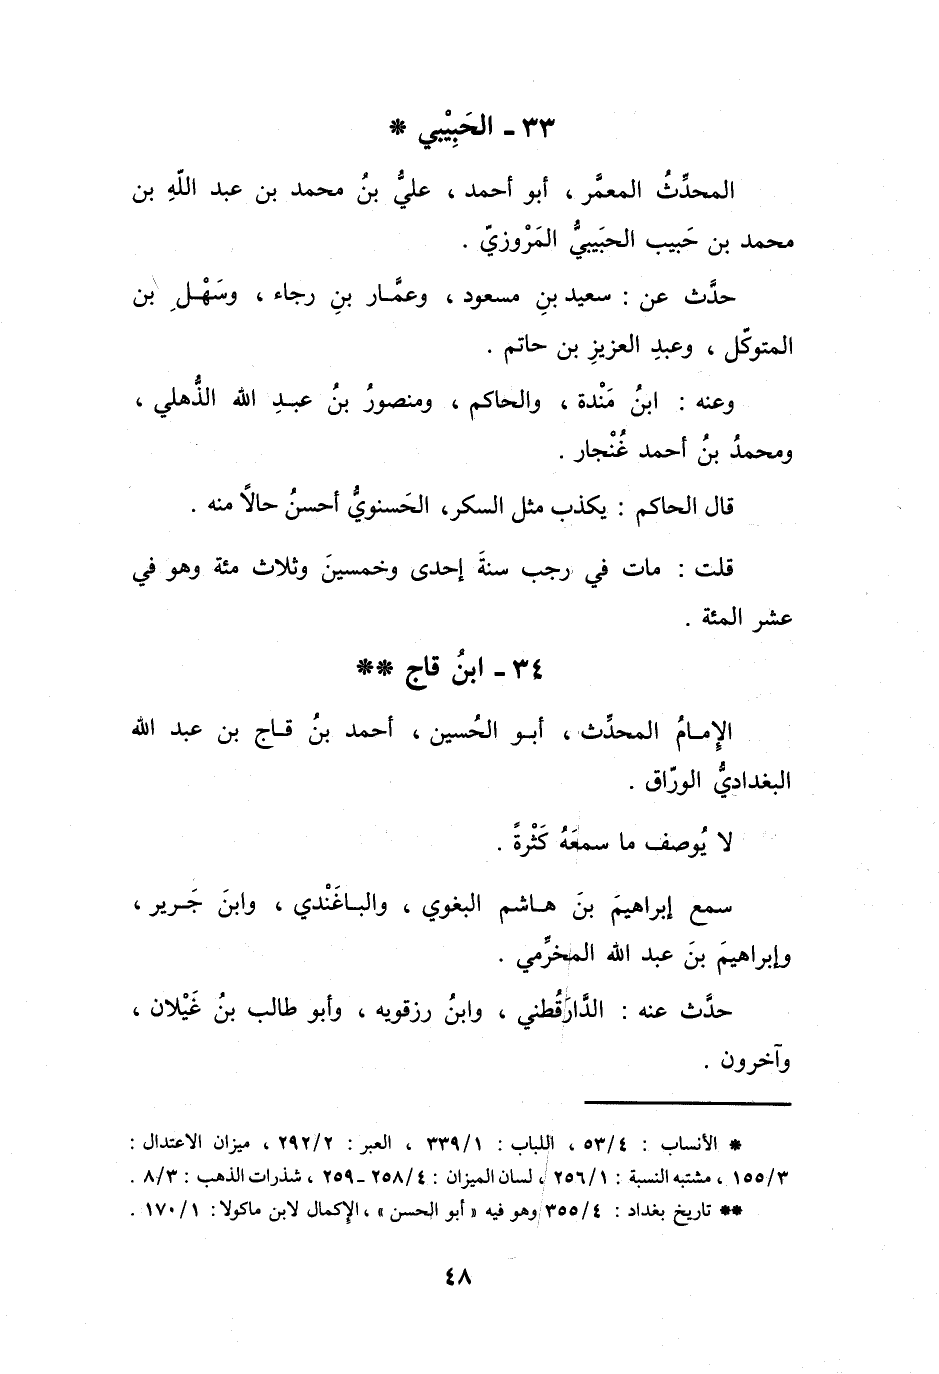 ٣٣ - الحَبِيْبي *
المحدِّثُ المعمَّر ، أبو أحمد ، عليُّ بنُ محمد بن عبد اللّهِ بن
محمد بن حَبيب الحبَيبيُّ المَرْوزيّ .
حدَّث عن : سعيد بنِ مسعود ، وعمَّـار بنِ رجاء ، وسَهْـلِ بن
المتوكّل ، وعبدِ العزيزِ بن حاتم .
وعنه : ابنُ مَنْدة ، والحاكم ، ومنصورُ بنُ عبـدِ الله الذُّهلي ،
ومحمدُ بنُ أحمد غُنْجار .
قال الحاكم : يكذب مثل السكر، الحَسنويُّ أحسنُ حالاً منه .
قلت : مات في رجب سنةَ إحدى وخمسينَ وثلاث مئة وهو في
عشر المئة .
٣٤ - ابنُ قاج **
الإِمـامُ المحدِّث ، أبـو الحُسين ، أحمد بنُ قـاج بن عبد الله
البغداديُّ الورّاق .
لا يُوصف ما سمعَهُ كَثْرةً .
سمع إبراهيمَ بنَ هـاشم البغوي ، والبـاغَنْدي ، وابنَ جَـرير ،
وإبراهيمَ بنَ عبد الله المخرِّمي .
حدَّث عنه : الدَّارَقُطني ، وابنُ رزقويه ، وأبو طالب بنُ غَيْلان ،
وآخرون .
* الأنساب : ٥٣/٤ ، اللباب : ٣٣٩/١ ، العبر : ٢٩٢/٢ ، ميزان الاعتدال :
١٥٥/٣ ، مشتبه النسبة : ٢٥٦/١ ، لسان الميزان : ٢٥٨/٤ - ٢٥٩ ، شذرات الذهب : ٨/٣ .
** تاريخ بغداد : ٣٥٥/٤ وهو فيه « أبو الحسن » ، الإكمال لابن ماكولا : ١٧٠/١ .
٤٨